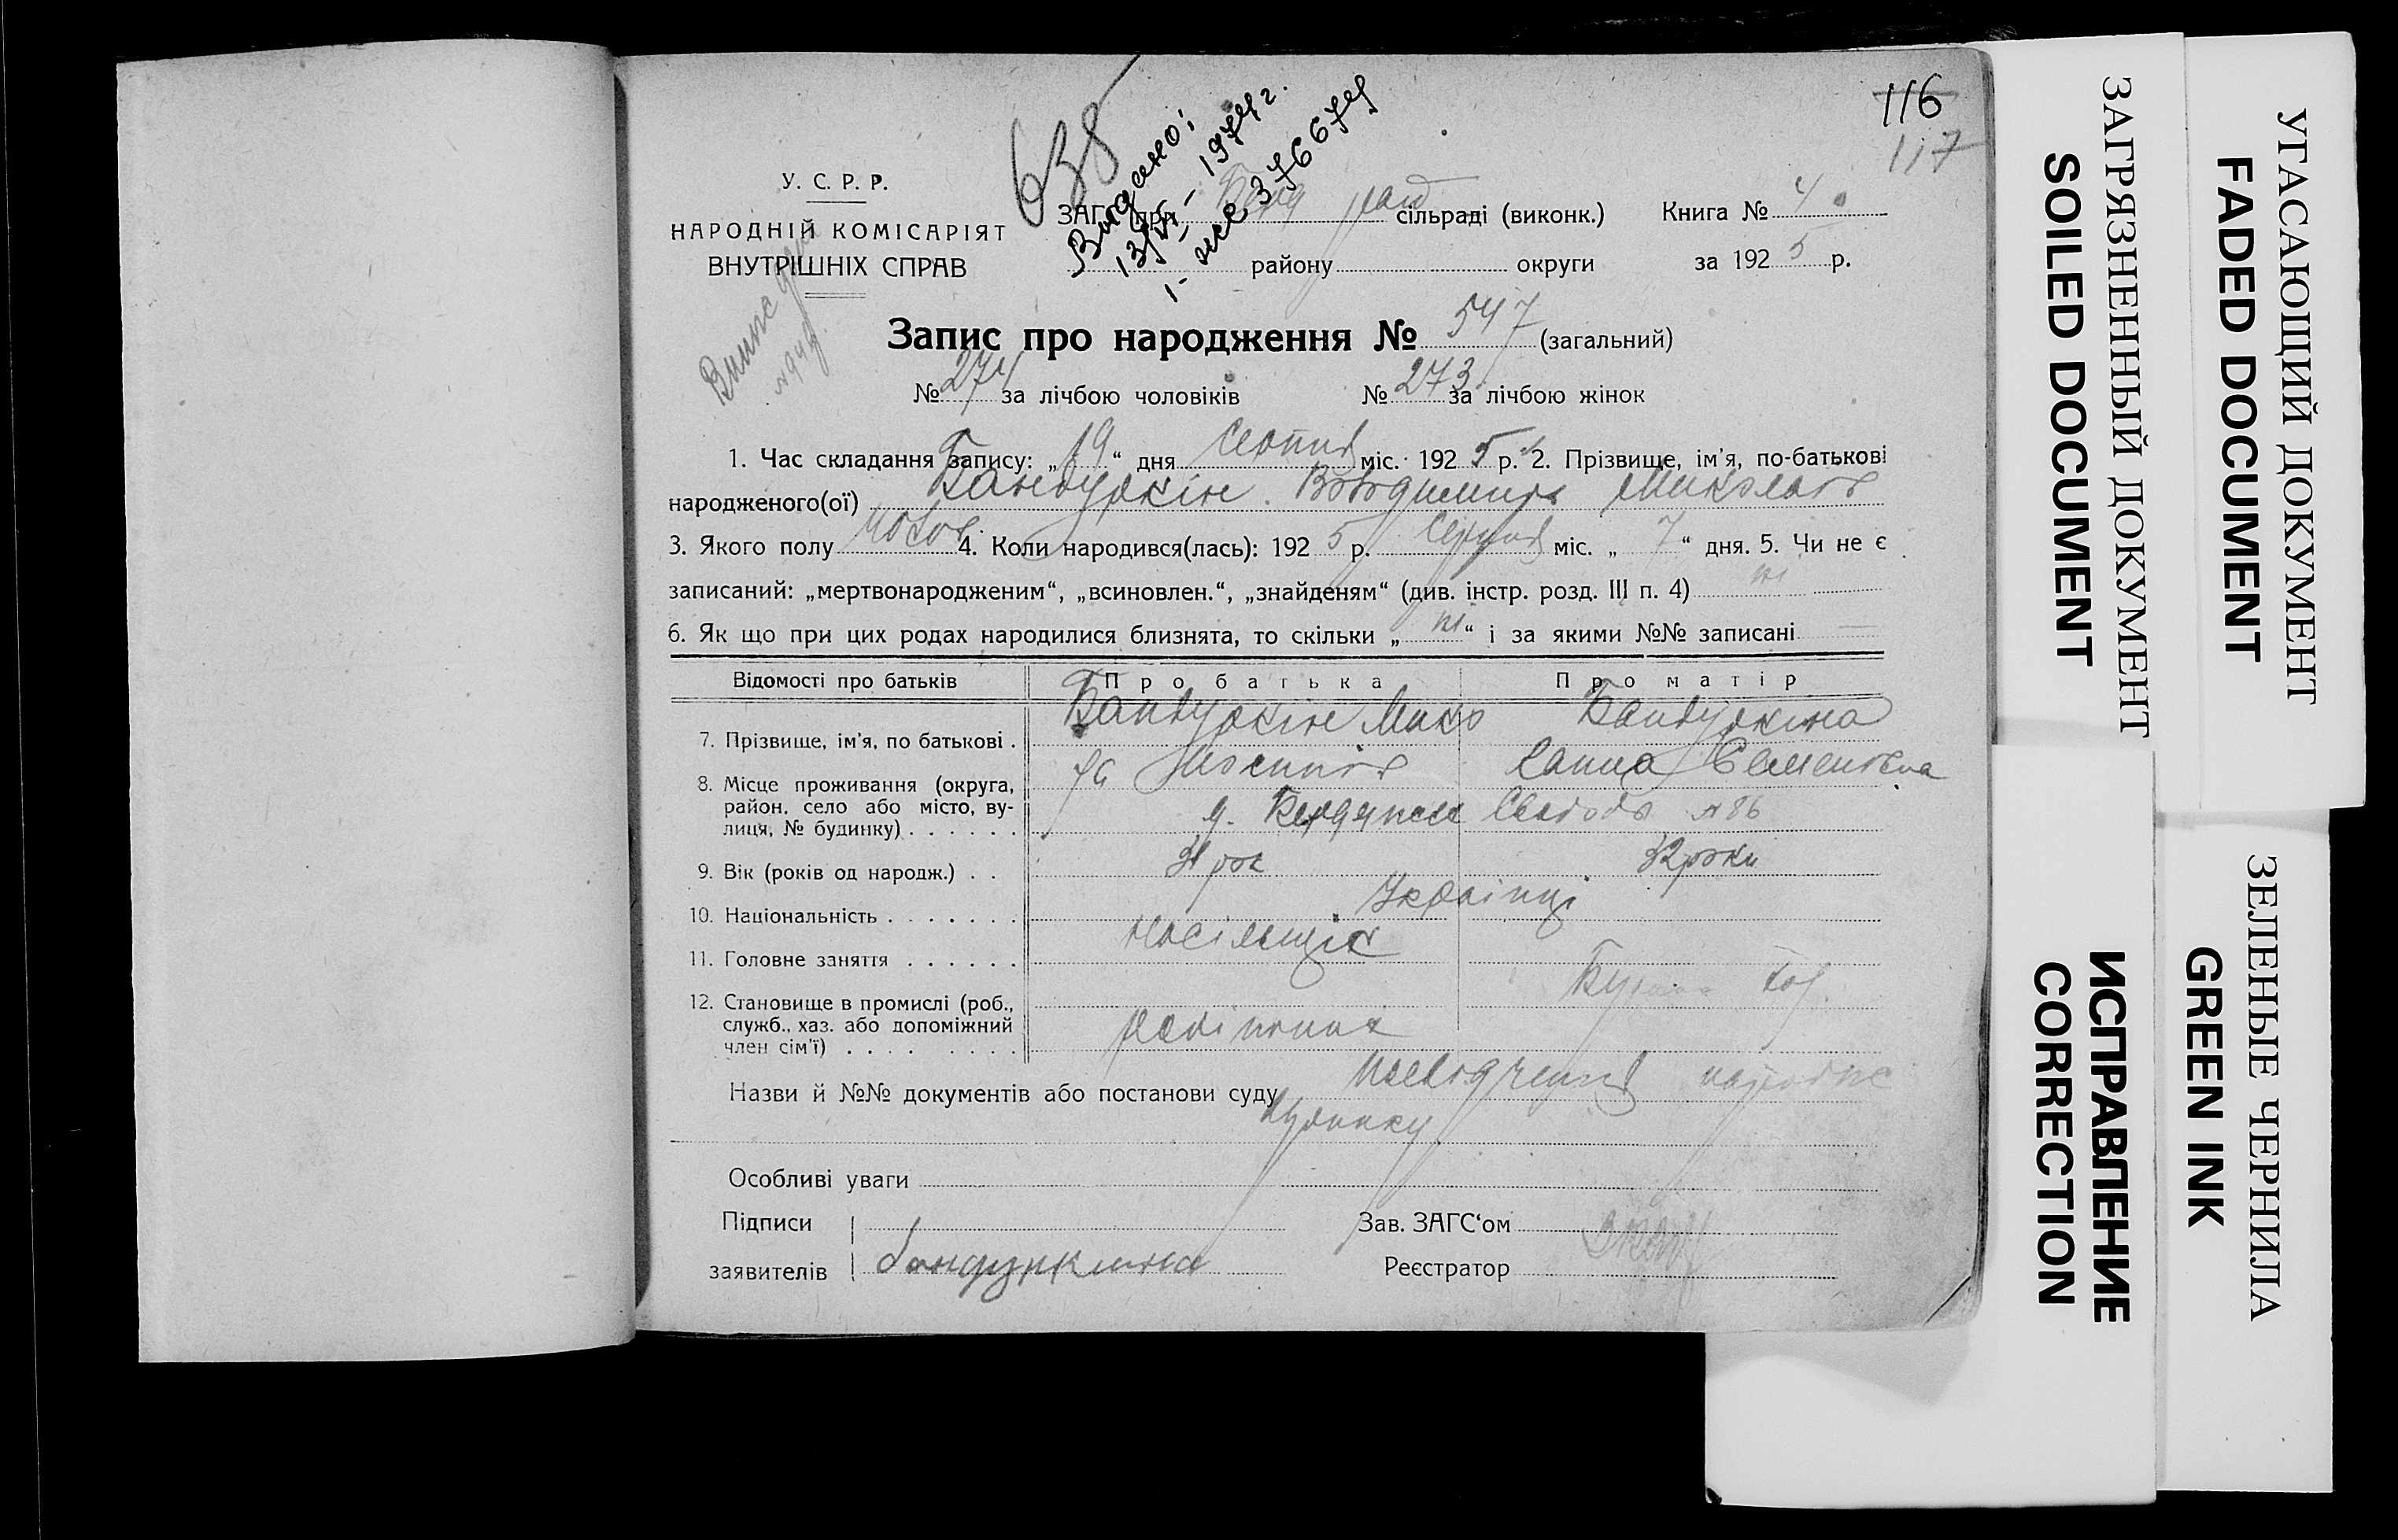 116
117
638
Видано:
13/V - 1974 г.
У. С. Р. Р.
НАРОДНІЙ КОМІСАРІЯТ
ВНУТРІШНІХ СПРАВ
ЗАГС при сільраді (виконк.) Книга № 4
району округи за 1925 р.
Запис про народження № 547 (загальний)
№ 274 за лічбою чоловіків № 273 за лічбою жінок
1. Час складання запису: „19“ дня серпня міс. 1925 р. 2. Прізвище, ім'я, по-батькові
народженого(ої) Бандуркін Володимир Миколаїв
3. Якого полу чолов. 4. Коли народився(лась): 1925 р. серпня міс. „7“ дня. 5. Чи не є
записаний: „мертвонародженим“, „всиновлен.“, „знайденям“ (див. інстр. розд. III п. 4) ні
6. Як що при цих родах народилися близнята, то скільки „ні“ і за якими №№ записані —
Відомості про батьків Про батька Про матір
7. Прізвище, ім'я, по батькові . Бандуркін Мико Бандуркіна
ла Ганна Семенівна
8. Місце проживання (округа,
район, село або місто, ву-
лиця, № будинку) . . . . . . Свободи №86
9. Вік (років од народж.) . . 31 рок 32 роки
10. Національність . . . . . . . Українці
11. Головне заняття . . . . . . носільщік
12. Становище в промислі (роб.,
служб., хаз. або допоміжний
член сім'ї) . . . . . . . . робітник
Назви й №№ документів або постанови суду
Особливі уваги
Підписи Зав. ЗАГС'ом
заявителів Бандуркина Реєстратор
ЗАГРЯЗНЕННЫЙ ДОКУМЕНТ
SOILED DOCUMENT
УГАСАЮЩИЙ ДОКУМЕНТ
FADED DOCUMENT
ИСПРАВЛЕНИЕ
CORRECTION
ЗЕЛЕНЫЕ ЧЕРНИЛА
GREEN INK